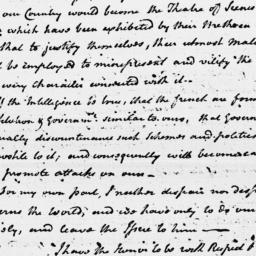 our Country would become the Theatre of Scenes
which have been exhibited by their Brethren
that to justify themselves, their utmost Mali
be employed to misrepresent and vilify the
every character connected with it.—
If the Intelligence is true, that the french are form
& Governmt. similar to ours, that Govern
ually discountenance such Schemes and politics
to it; and consequently will become
promote attacks on ours—
For my own part, I neither despair nor desp
erns the World, and we have only to do our
ly, and leave the Issue to him—
I have the Honor to be with Respect &